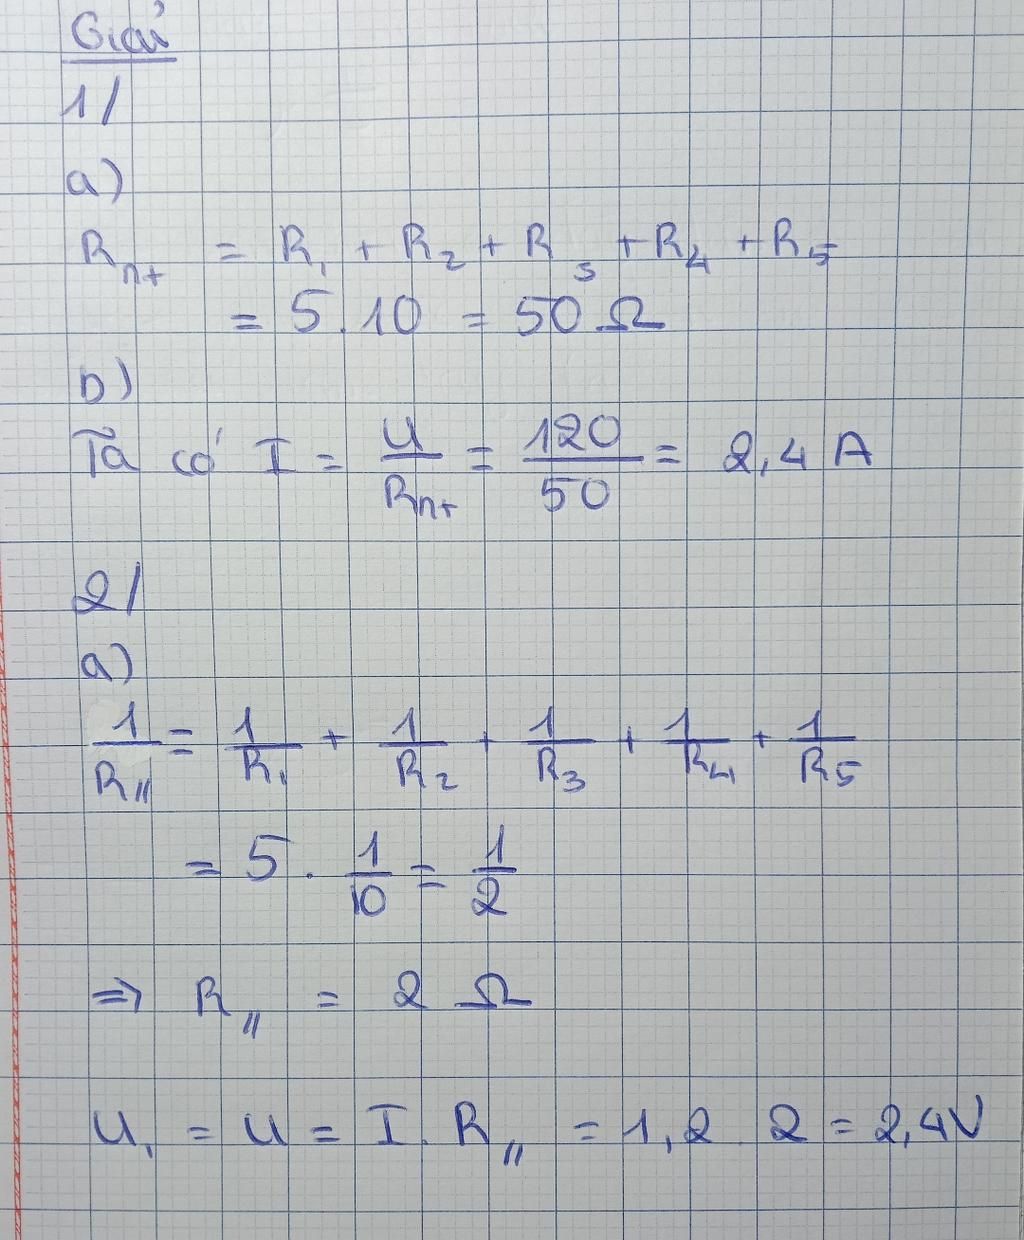 Giải
1/
a)
Rnt = R1 + R2 + R3 + R4 + R5
= 5.10 = 50 Ω
b)
Ta có I = U/Rnt = 120/50 = 2,4 A
2/
a)
1/R// = 1/R1 + 1/R2 + 1/R3 + 1/R4 + 1/R5
= 5 . 1/10 = 1/2
=> R// = 2 Ω
U1 = U = I. R// = 1,2 . 2 = 2,4V